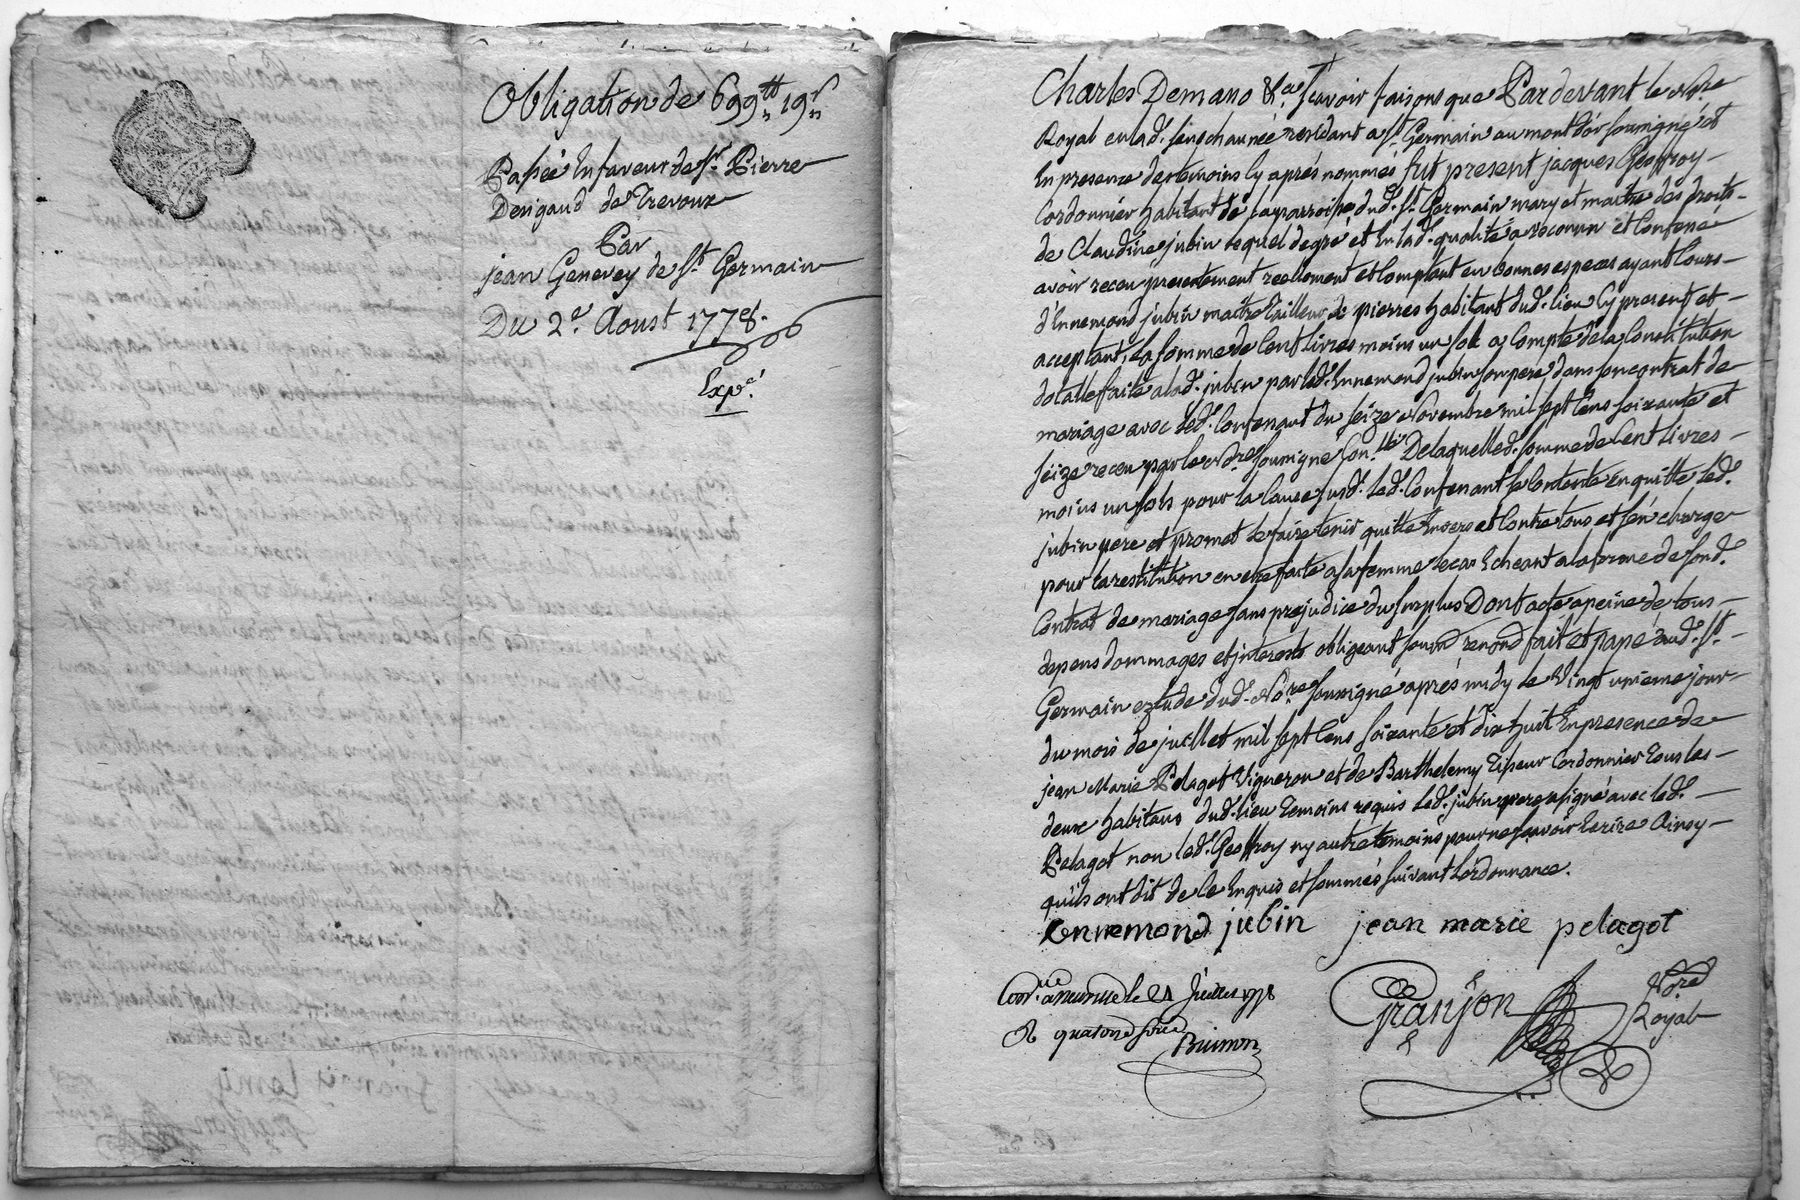 Obligation de 699ᵗᵗ 19ˢ
Passée en faveur de Sʳ Pierre
Derigaud de Trevoux
Par
jean Genevey de Sᵗ Germain
Du 2ᵉ Aoust 1778.
Expᵉ.
Charles Demano &ᵃ scavoir faisons que Pardevant le Noʳᵉ
Royal en lad. senechaussée residant a Sᵗ Germain au mont d'or soussigné et
en presence des temoins cy aprés nommés fut present jacques Geoffroy
Cordonnier habitant de la parroisse dud. Sᵗ Germain mary et maitre des droits
de Claudine jubin lequel de gré et en lad. qualité a reconnu et confessé
avoir receu presentement reellement et comptant en bonnes especes ayant cours
d'Ennemond jubin maitre tailleur de pierres habitant dud. lieu cy present et
acceptant, la somme de cent livres moins un sol a compte de la constitution
dotalle faite a lad. jubin par led. Ennemond jubin son pere dans son contrat de
mariage avec led. confessant du seize Novembre mil sept cens soixante et
seize receu par le Noʳᵉ soussigné Delaquelle d. somme de cent livres
moins un sols pour la cause susd. led. confessant se contente en quitte led.
jubin pere et promet le faire tenir quitte envers et contre tous et s'en charge
pour la restitution en etre faite a sa femme le cas echeant a la forme de sond.
Contrat de mariage sans prejudice du surplus Dont acte a peine de tous
depens dommages et jnterests obligeant soum renond fait et passé aud. Sᵗ
Germain etude dud. Noʳᵉ soussigné aprés midy le vingt unieme jour
du mois de juillet mil sept cens soixante et dix huit en presence de
jean Marie Pelagot Vigneron et de Barthelemy Tisseur Cordonnier tous les
deux habitans dud. lieu temoins requis led. jubin pere a signé avec led.
Pelagot non led. Geoffroy ny autre temoins pour ne scavoir ecrire Ainsy
qu'ils ont dit de ce enquis et sommés suivant l'ordonnance.
Ennemond jubin jean marie pelagot
Granjon Noʳᵉ Royal
le 21 Juillet 1778
R quatorze sols